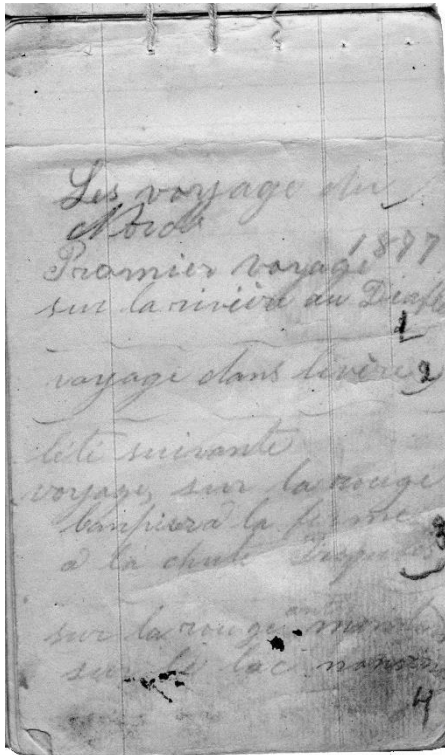 Les voyage du
Nord
1877
Promier voyage
sur la rivière du Diable
1
voyage dans livère
2
l'éti suivante
voyage, sur la rouge
a la ferme
a la chute
3
sur la rouge
sur le lac
4